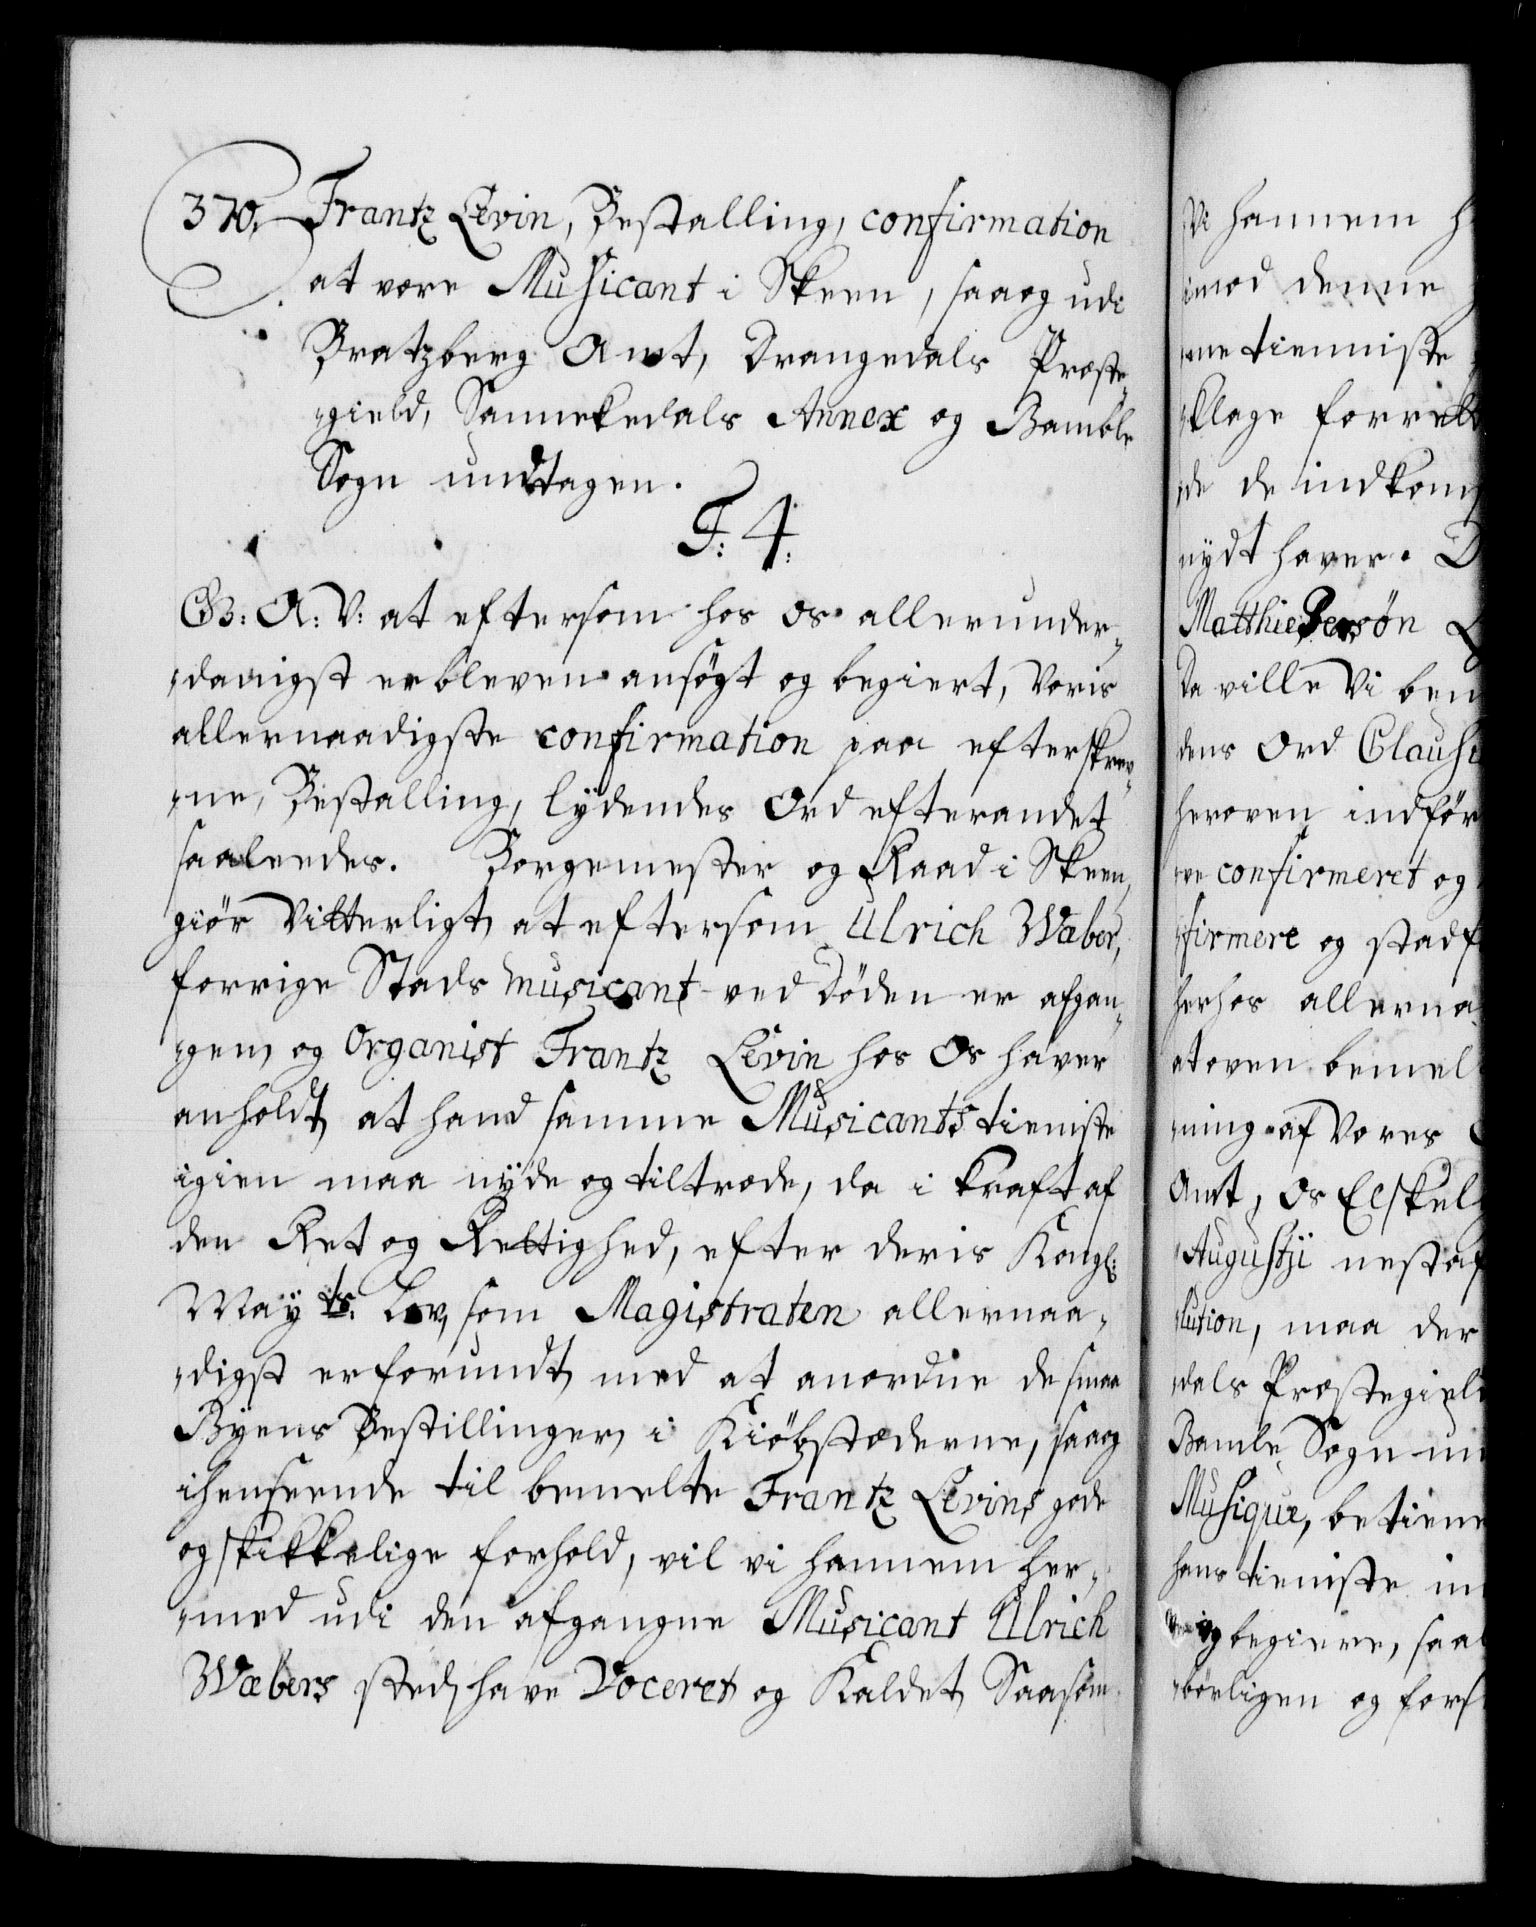 370. Frantz Levin, Bestalling, confirmation
at være Musicant i Skeen, saa og udi
Bratzberg Amt, Drangedals Præste-
gield, Sannekedals Annex og Bamble
Sogn undtagen.
F: 4.
G: A: V: at eftersom hos os allerunder-
danigst er bleven ansøgt og begiert, Voris
allernaadigste confirmation paa efterskrev-
ne, Bestalling, lydendes Ord efter andet
saaledes. Borgemester og Raad i Skeen,
giör Vitterligt, at eftersom Ulrich Wæber,
forrige Stads musicant ved Döden er afgan-
gen, og Organist Frantz Levin hos Os haver
anholdt, at hand samme Musicants tieniste
igien maa nyde og tiltræde, da i kraft af
den Ret og Rettighed, efter deris Kongl:
May ts. Lov, som Magistraten allernaa-
digst er forundt, med at anordne de smaa
Byens Bestillinger, i Kiöbstæderne, saa og
i henseende til bemelte Frantz Levins gode
og skikkelige forhold, vil vi hannem her-
med udi den afgangne Musicant Ulrich
Wæbers sted, have Voceret og Kaldet, Saasom
Vi hannem
imod denne
ne tienniste
klage forrett
de de indkom
nydt haver. D
Matthie Persøn
Da ville Vi
dens Ord Clausu
heroven indför
ve confirmeret og
firmere og stadf
herhos allerna
at oven bemel
ning af Vores
Amt, Os Elskel
Augustii nest af
lution, maa der
dals Præstegiel
Bamle Sogn un
Musique, betiene
hans tieniste
begiere, saa
börligen og fors